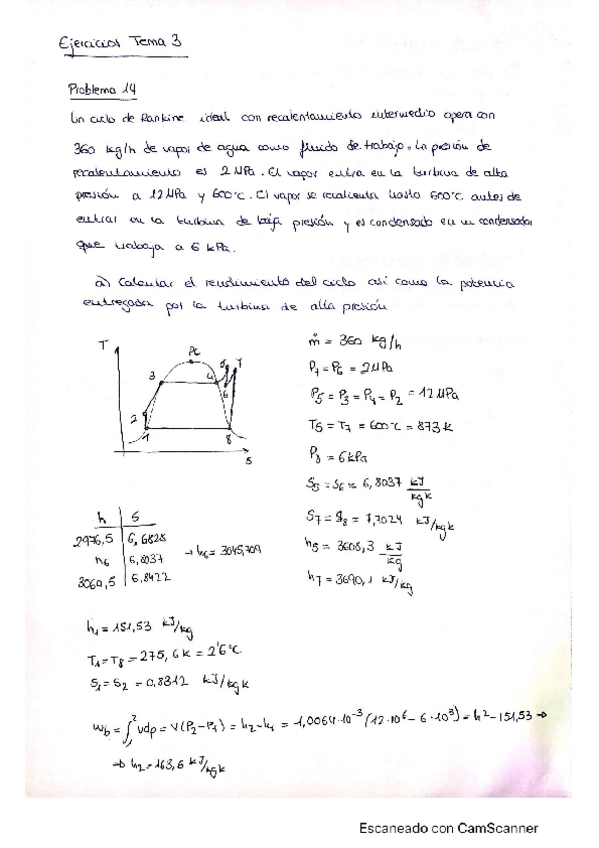 Ejercicios Tema 3
Problema 14
Un ciclo de Rankine ideal con recalentamiento intermedio opera con
360 kg/h de vapor de agua como fluido de trabajo. La presión de
recalentamiento es 2 MPa. El vapor entra en la turbina de alta
presión a 12 MPa y 600°C. El vapor se recalienta hasta 600°C antes de
entrar en la turbina de baja presión y es condensado en un condensador
que trabaja a 6 kPa.
a) Calcular el rendimiento del ciclo así como la potencia
entregada por la turbina de alta presión
T
PC
3
4
5
7
6
2
1
8
S
ṁ = 360 kg/h
P7 = P6 = 2 MPa
P5 = P3 = P4 = P2 = 12 MPa
T5 = T7 = 600°C = 873 K
P8 = 6 kPa
S5 = S6 = 6,8037 kJ/kg K
S7 = S8 = 7,7024 kJ/kg K
h5 = 3608,3 kJ/kg
h7 = 3690,1 kJ/kg
h | S
2976,5 | 6,6828
h6 | 6,8037 → h6 = 3045,709
3069,5 | 6,8422
h1 = 151,53 kJ/kg
T1 = T8 = 275,6 K = 2'6°C
S1 = S2 = 0,8312 kJ/kg K
Wb = ∫₁² vdp = V(P2 - P1) = h2 - h1 = 1,0064·10⁻³ (12·10⁶ - 6·10³) = h2 - 151,53 →
→ h2 = 163,6 kJ/kg K
Escaneado con CamScanner